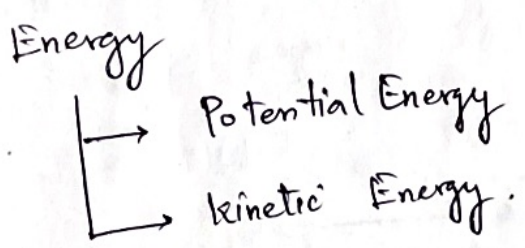 Energy
Potential Energy
kinetic Energy.